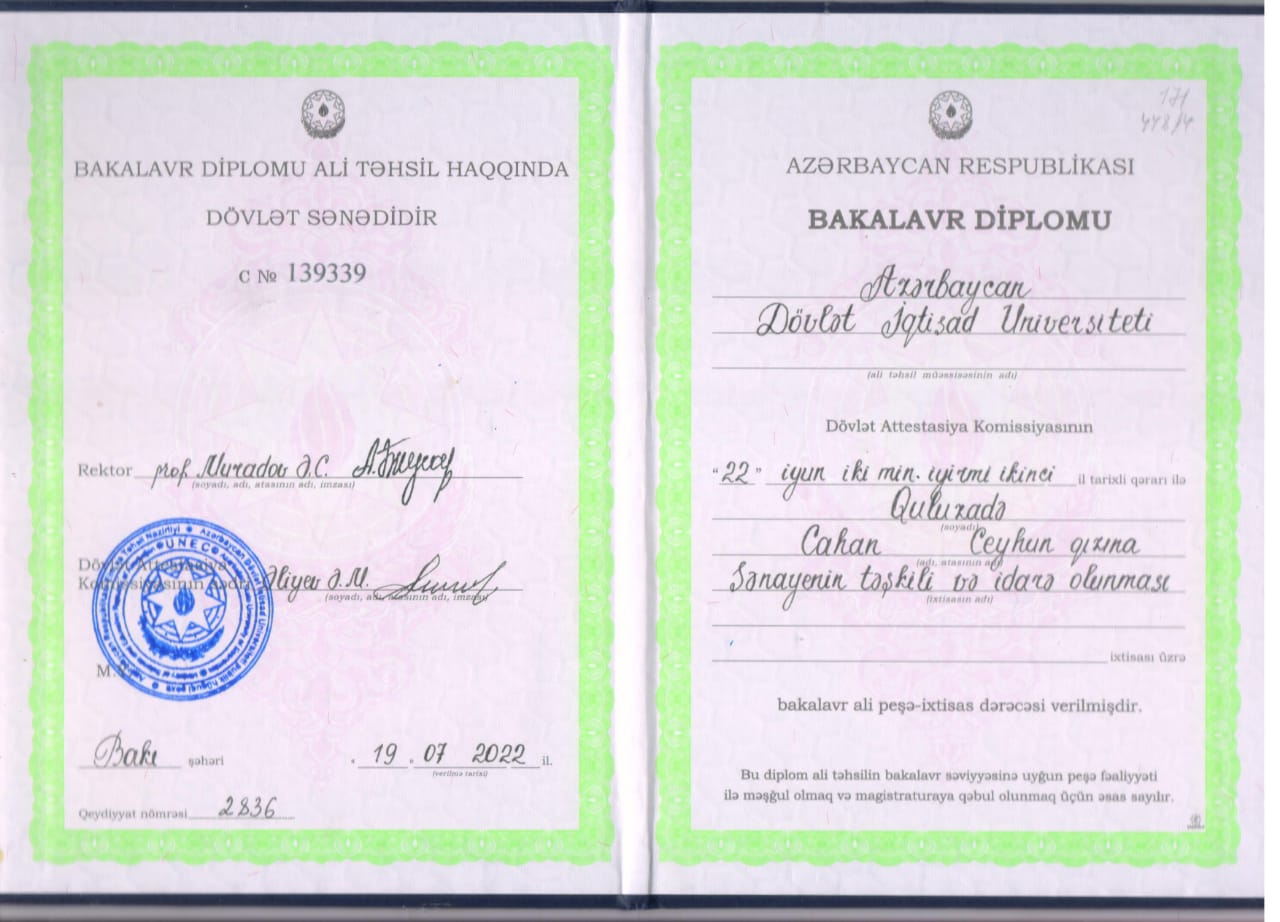 BAKALAVR DİPLOMU ALİ TƏHSİL HAQQINDA
DÖVLƏT SƏNƏDİDİR
C № 139339
Rektor prof. Muradov Ə.C.
(soyadı, adı, atasının adı, imzası)
Dövlət Attestasiya
Komissiyasının sədri Əliyev Ə.M.
(soyadı, adı, atasının adı, imzası)
UNEC
M.
Bakı şəhəri
" 19 " 07 2022 il.
(verilmə tarixi)
Qeydiyyat nömrəsi 2836
171
448/4
AZƏRBAYCAN RESPUBLİKASI
BAKALAVR DİPLOMU
Azərbaycan
Dövlət İqtisad Universiteti
(ali təhsil müəssisəsinin adı)
Dövlət Attestasiya Komissiyasının
"22" iyun iki min iyirmi ikinci il tarixli qərarı ilə
Quluzadə
(soyadı)
Cahan Ceyhun qızına
(adı, atasının adı)
Sənayenin təşkili və idarə olunması
(ixtisasın adı)
ixtisası üzrə
bakalavr ali peşə-ixtisas dərəcəsi verilmişdir.
Bu diplom ali təhsilin bakalavr səviyyəsinə uyğun peşə fəaliyyəti
ilə məşğul olmaq və magistraturaya qəbul olunmaq üçün əsas sayılır.